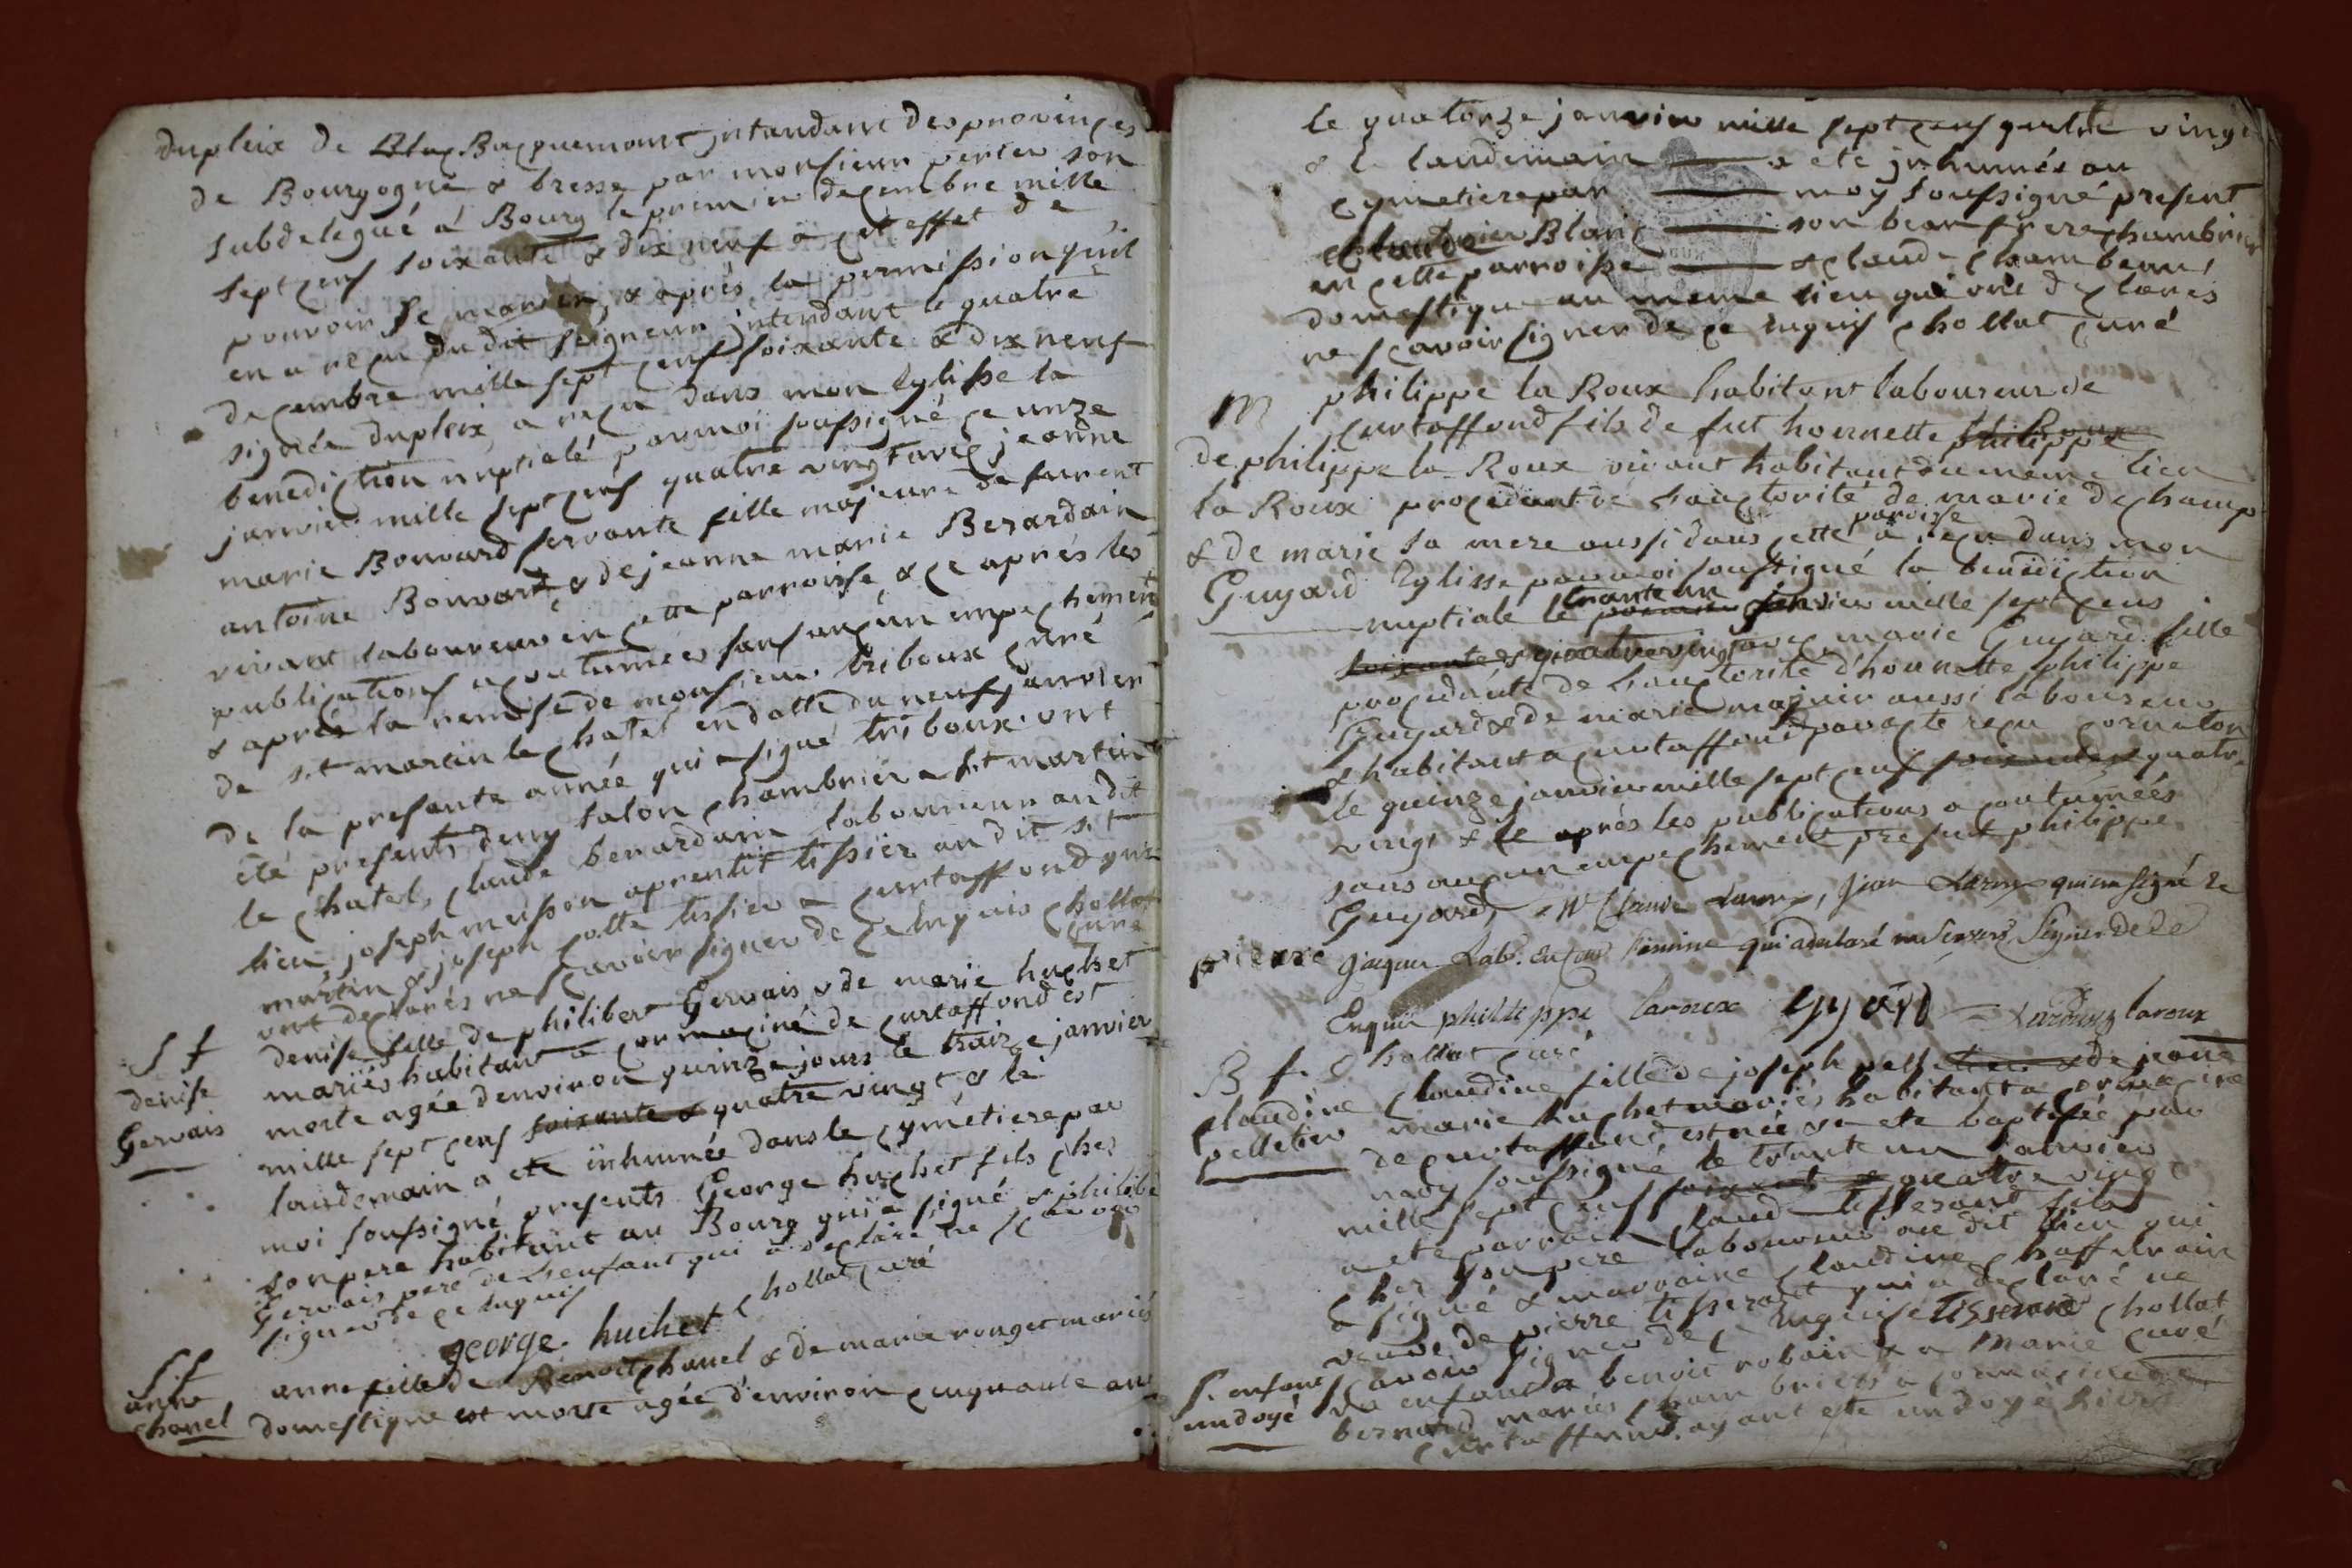 dupleix de Bacquemont jntandant des provinces
de Bourgogne & bresse par monsieur perier son
subdelegué á Bourg le premier decembre mille
sept cens soixante & dix neuf a cet effet de
pouvoir se marier, & aprés la permission quil
en a reçu du dit seigneur jntendant le quatre
decembre mille sept cens soixante & dix neuf
signée dupleix a reçu dans mon Eglisse la
benediction nuptiale par moi soussigné ce unze
janvier mille sept cens quatre vingt avec jeanne
marie Bouvard servante fille majeure de furent
antoine Bouvard & de jeanne marie Berardain
vivant laboureur en cette parroisse & ce aprés les
publications acoutumées sans aucun empechement
& aprés la remise de monsieur triboux curé
de st martin le chatel en datte du neuf janvier
de la presente année qui a signé triboux. ont
été presents deny salon chambrier a st martin
le chatel, claude berardain laboureur au dit
lieu, joseph musson aprentit tissier au dit st
martin & joseph cotte tissier a curtaffond qui
ont declarés ne sçavoir signer de ce enquis chollat
curé
S f
denise
Gervais
denise fille de philibert Gervais & de marie huchet
mariés habitant a cormaciné de curtaffond est
morte agée denviron quinze jours le traize janvier
mille sept cens soixante & quatre vingt & le
landemain a ete inhumée dans le cymétiere par
moi soussigné presents George huchet fils ches
son pere habitant au Bourg qui a signé & philibe
Gervais pere de lenfant qui a declaré ne sçavoir
signer de ce enquis chollat curé
george huchet
S f
anne
chanel
anne fille de Benoit chanel & de marie rouget mariés
domestique est morte agée d'environ cinquante ans
le quatorze janvier mille sept cens quatre vingt
& le landemain a ete jnhumés au
cymetiere par moy soussigné present
Blanc son beau frere chambrier
en cette parroisse & claude chambeau
domestique au meme lieu qui ont declarés
ne sçavoir signer de ce enquis chollat curé
M
philippe la Roux habitant laboureur de
curtaffond fils de fut honnette philippe
de philippe la Roux vivant habitant du meme lieu
la Roux procedant de lauctorité de marie dechamp
& de marie sa mere aussi dans cette paroisse a reçu dans mon
Guyard Eglisse par moi soussigné la benediction
nuptiale le trante un janvier mille sept cens
soixante & quatre vingt avec marie Guyard fille
procedante de lauctorité d'honnette philippe
Guyard & de marie majuir aussi laboureur
& habitant a curtaffond par acte reçu cornaton
le quinze janvier mille sept cens soixante & quatre
vingt & ce aprés les publications acoutumées
sans aucun empechement present philippe
Guyard, Claude Laroux, jean Laroux qui ont signé &
pierre jaquin Lab. qui a declaré ne sçavoir signer de ce
Enquis philippe laroux Guyard laroux
chollat curé
B f.
claudine
pelletier
claudine fille de joseph pelletier & de jeane
marie huchet mariés habitant a cormaciné
de curtaffond est née & a ete baptisée par
moy soussigné le trante un janvier
mille sept cens soixante & quatre vingt
a ete parrain claude tisserant fils
ches son pere laboureur au dit lieu qui
a signé & marraine claudine chaffelrain
veuve de pierre tisserant qui a declaré ne
sçavoir signer de ce enquise tisserand chollat
curé
S. enfant
undoyé
un enfant a benoit robain & a marie
bernard mariés chambriers a cormaciné de
curtaffond, ayant ete undoyé hier